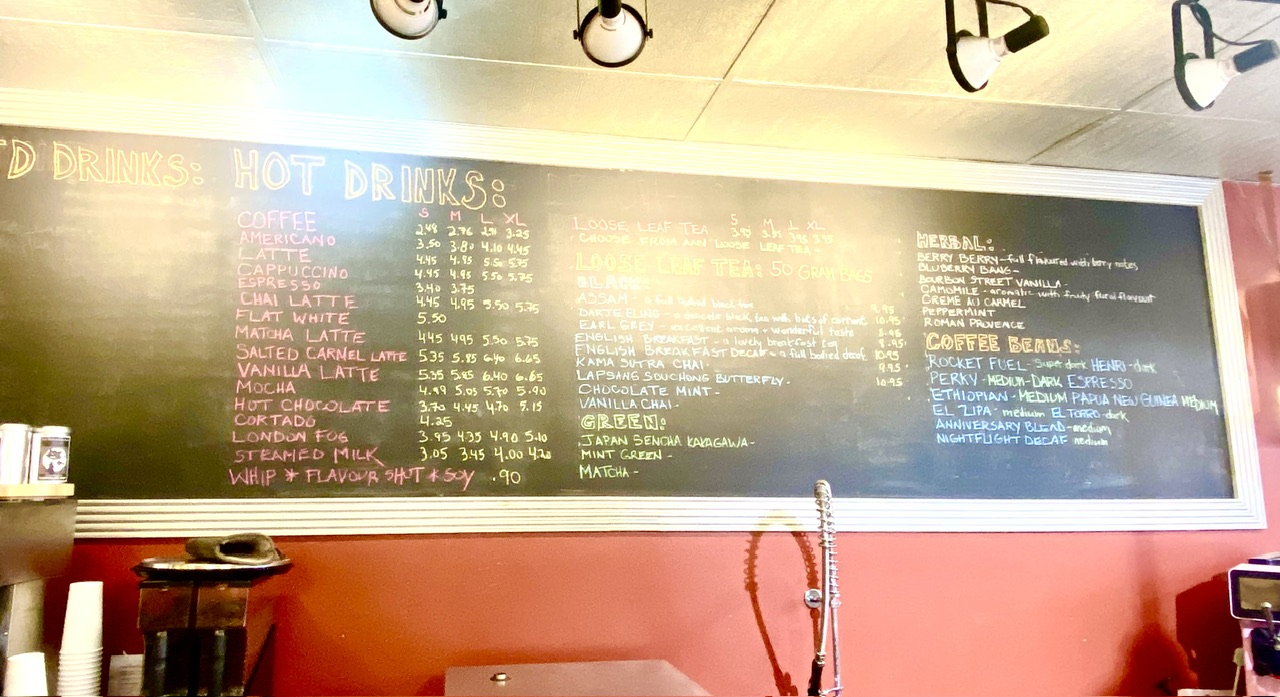 D DRINKS:
HOT DRINKS:
S M L XL
COFFEE 2.48 2.76 2.91 3.25
AMERICANO 3.50 3.80 4.10 4.45
LATTE 4.45 4.95 5.50 5.75
CAPPUCCINO 4.45 4.95 5.50 5.75
ESPRESSO 3.40 3.75
CHAI LATTE 4.45 4.95 5.50 5.75
FLAT WHITE 5.50
MATCHA LATTE 4.45 4.95 5.50 5.75
SALTED CARMEL LATTE 5.35 5.85 6.40 6.65
VANILLA LATTE 5.35 5.85 6.40 6.65
MOCHA 4.99 5.05 5.70 5.90
HOT CHOCOLATE 3.70 4.45 4.70 5.15
CORTADO 4.25
LONDON FOG 3.95 4.35 4.90 5.10
STEAMED MILK 3.05 3.45 4.00 4.20
WHIP * FLAVOUR SHOT * SOY .90
S M L XL
LOOSE LEAF TEA 3.95 3.95 3.95 3.95
- CHOOSE FROM ANY LOOSE LEAF TEA -
LOOSE LEAF TEA: 50 GRAM BAGS
BLACK:
ASSAM - a full bodied black tea 9.95
DARJEELING - a delicate black tea with hints of currant 10.95
EARL GREY - excellent aroma + wonderful taste 8.95
ENGLISH BREAKFAST - a lovely breakfast tea 8.95
ENGLISH BREAKFAST DECAF - a full bodied decaf 10.95
KAMA SUTRA CHAI - 9.95
LAPSANG SOUCHONG BUTTERFLY - 10.95
CHOCOLATE MINT -
VANILLA CHAI -
GREEN:
JAPAN SENCHA KAKAGAWA -
MINT GREEN -
MATCHA -
HERBAL:
BERRY BERRY - full flavoured with berry notes
BLUBERRY BANG -
BOURBON STREET VANILLA -
CAMOMILE - aromatic with fruity floral flavour
CREME AU CARMEL
PEPPERMINT
ROMAN PROVENCE
COFFEE BEANS:
ROCKET FUEL - super dark HENRI - dark
PERKY - MEDIUM-DARK ESPRESSO
ETHIOPIAN - MEDIUM PAPUA NEW GUINEA MEDIUM
EL ZIPA - medium EL TORRO - dark
ANNIVERSARY BLEND - medium
NIGHTFLIGHT DECAF medium